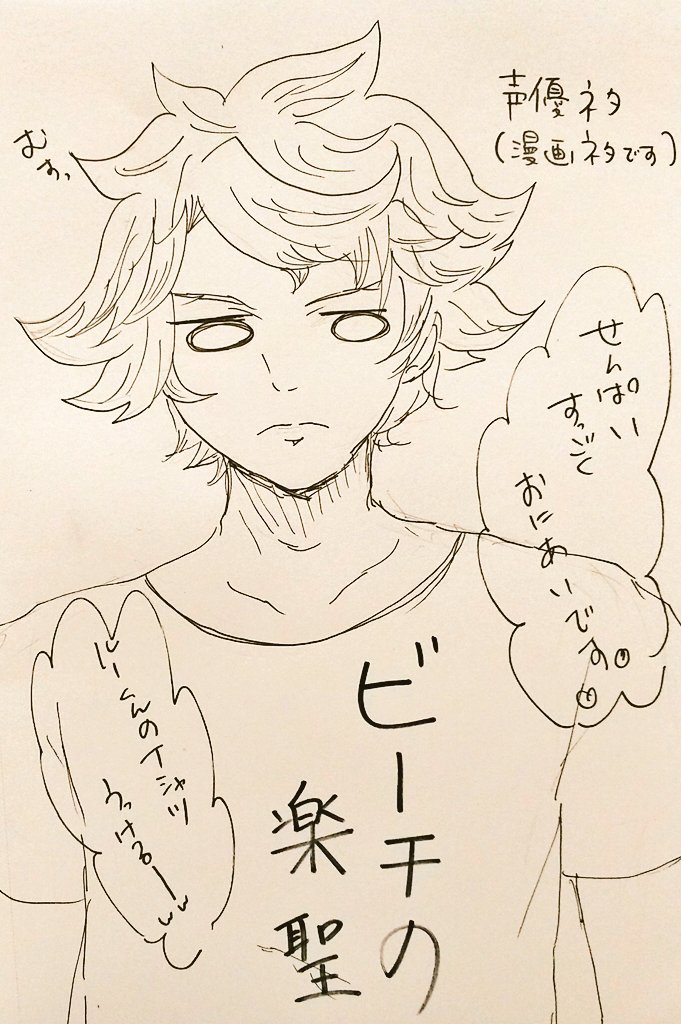 声優ネタ
(漫画ネタです)
むすっ
せんぱい
すっごく
おにあいです
じーくんのTシャツ
うっけるーww
ビーチの
楽聖